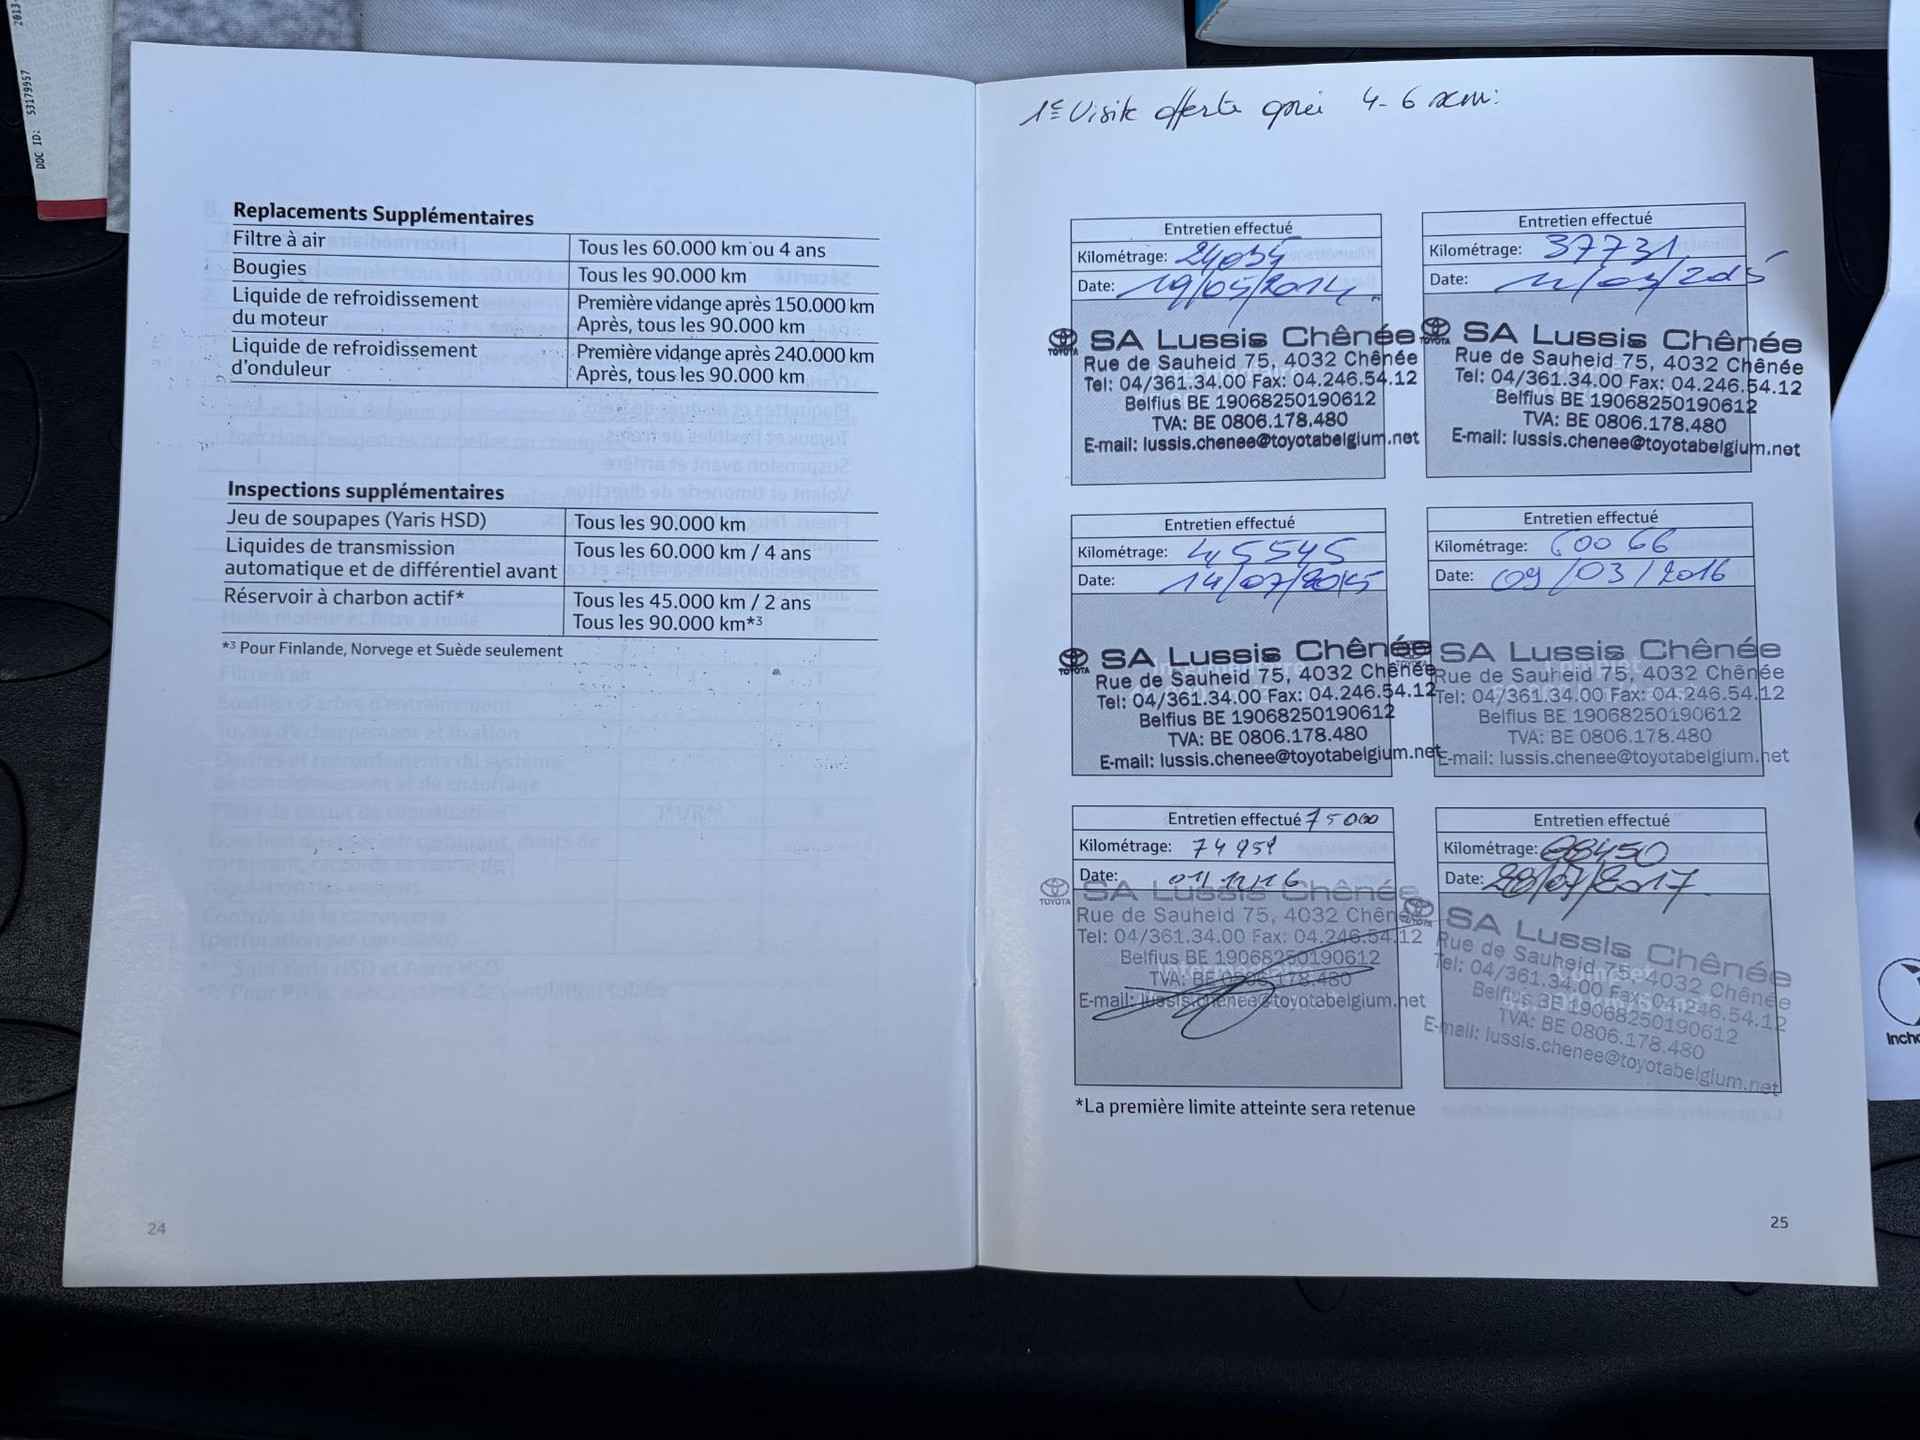 2013-
DOC ID: 53179957
Replacements Supplémentaires
Filtre à air Tous les 60.000 km ou 4 ans
Bougies Tous les 90.000 km
Liquide de refroidissement Première vidange après 150.000 km
du moteur Après, tous les 90.000 km
Liquide de refroidissement Première vidange après 240.000 km
d'onduleur Après, tous les 90.000 km
Inspections supplémentaires
Jeu de soupapes (Yaris HSD) Tous les 90.000 km
Liquides de transmission Tous les 60.000 km / 4 ans
automatique et de différentiel avant
Réservoir à charbon actif* Tous les 45.000 km / 2 ans
Tous les 90.000 km*³
*³ Pour Finlande, Norvege et Suède seulement
24
1e Visite offerte 4-6
Entretien effectué
Kilométrage:
Date: 19/05/2014
TOYOTA SA Lussis Chênée
Rue de Sauheid 75, 4032 Chênée
Tel: 04/361.34.00 Fax: 04.246.54.12
Belfius BE 19068250190612
TVA: BE 0806.178.480
E-mail: lussis.chenee@toyotabelgium.net
Entretien effectué
Kilométrage: 37731
Date: /03/2015
TOYOTA SA Lussis Chênée
Rue de Sauheid 75, 4032 Chênée
Tel: 04/361.34.00 Fax: 04.246.54.12
Belfius BE 19068250190612
TVA: BE 0806.178.480
E-mail: lussis.chenee@toyotabelgium.net
Entretien effectué
Kilométrage: 45545
Date: 14/07/2015
TOYOTA SA Lussis Chênée
Rue de Sauheid 75, 4032 Chênée
Tel: 04/361.34.00 Fax: 04.246.54.12
Belfius BE 19068250190612
TVA: BE 0806.178.480
E-mail: lussis.chenee@toyotabelgium.net
Entretien effectué
Kilométrage: 60066
Date: 09/03/2016
SA Lussis Chênée
Rue de Sauheid 75, 4032 Chênée
Tel: 04/361.34.00 Fax: 04.246.54.12
Belfius BE 19068250190612
TVA: BE 0806.178.480
E-mail: lussis.chenee@toyotabelgium.net
Entretien effectué 75000
Kilométrage: 74959
Date: 01/12/16
TOYOTA SA Lussis Chênée
Rue de Sauheid 75, 4032 Chênée
Tel: 04/361.34.00 Fax: 04.246.54.12
Belfius BE 19068250190612
TVA: BE 0806.178.480
E-mail: lussis.chenee@toyotabelgium.net
Entretien effectué
Kilométrage: 88450
Date: 28/07/2017
SA Lussis Chênée
Rue de Sauheid 75, 4032 Chênée
Tel: 04/361.34.00 Fax: 04.246.54.12
Belfius BE 19068250190612
TVA: BE 0806.178.480
E-mail: lussis.chenee@toyotabelgium.net
*La première limite atteinte sera retenue
25